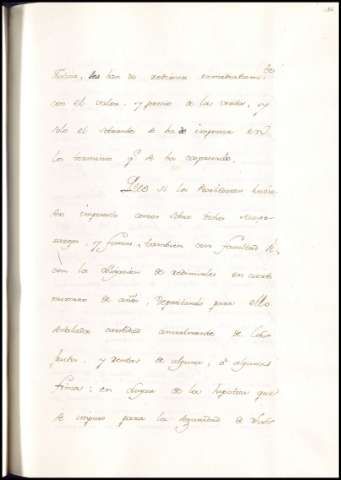 fincia, les han de redimir inmediatamte
con el valor, y precio de las ventas, y
solo el sobrante se ha de imponer en
los terminos q.e se ha expresado.
Pero si los Posehedores huvie
sen impuesto censos sobre dichos Mayo-
razgos, y fincas, tambien con facultad R.l
con la obligacion de redimirles en cierto
numero de años, depositando para ello
señalada cantidad anualmente de los
frutos, y rentas de alguna, ó algunas
fincas: en lugar de las hipotecas que
se impuso para la seguridad de dichos